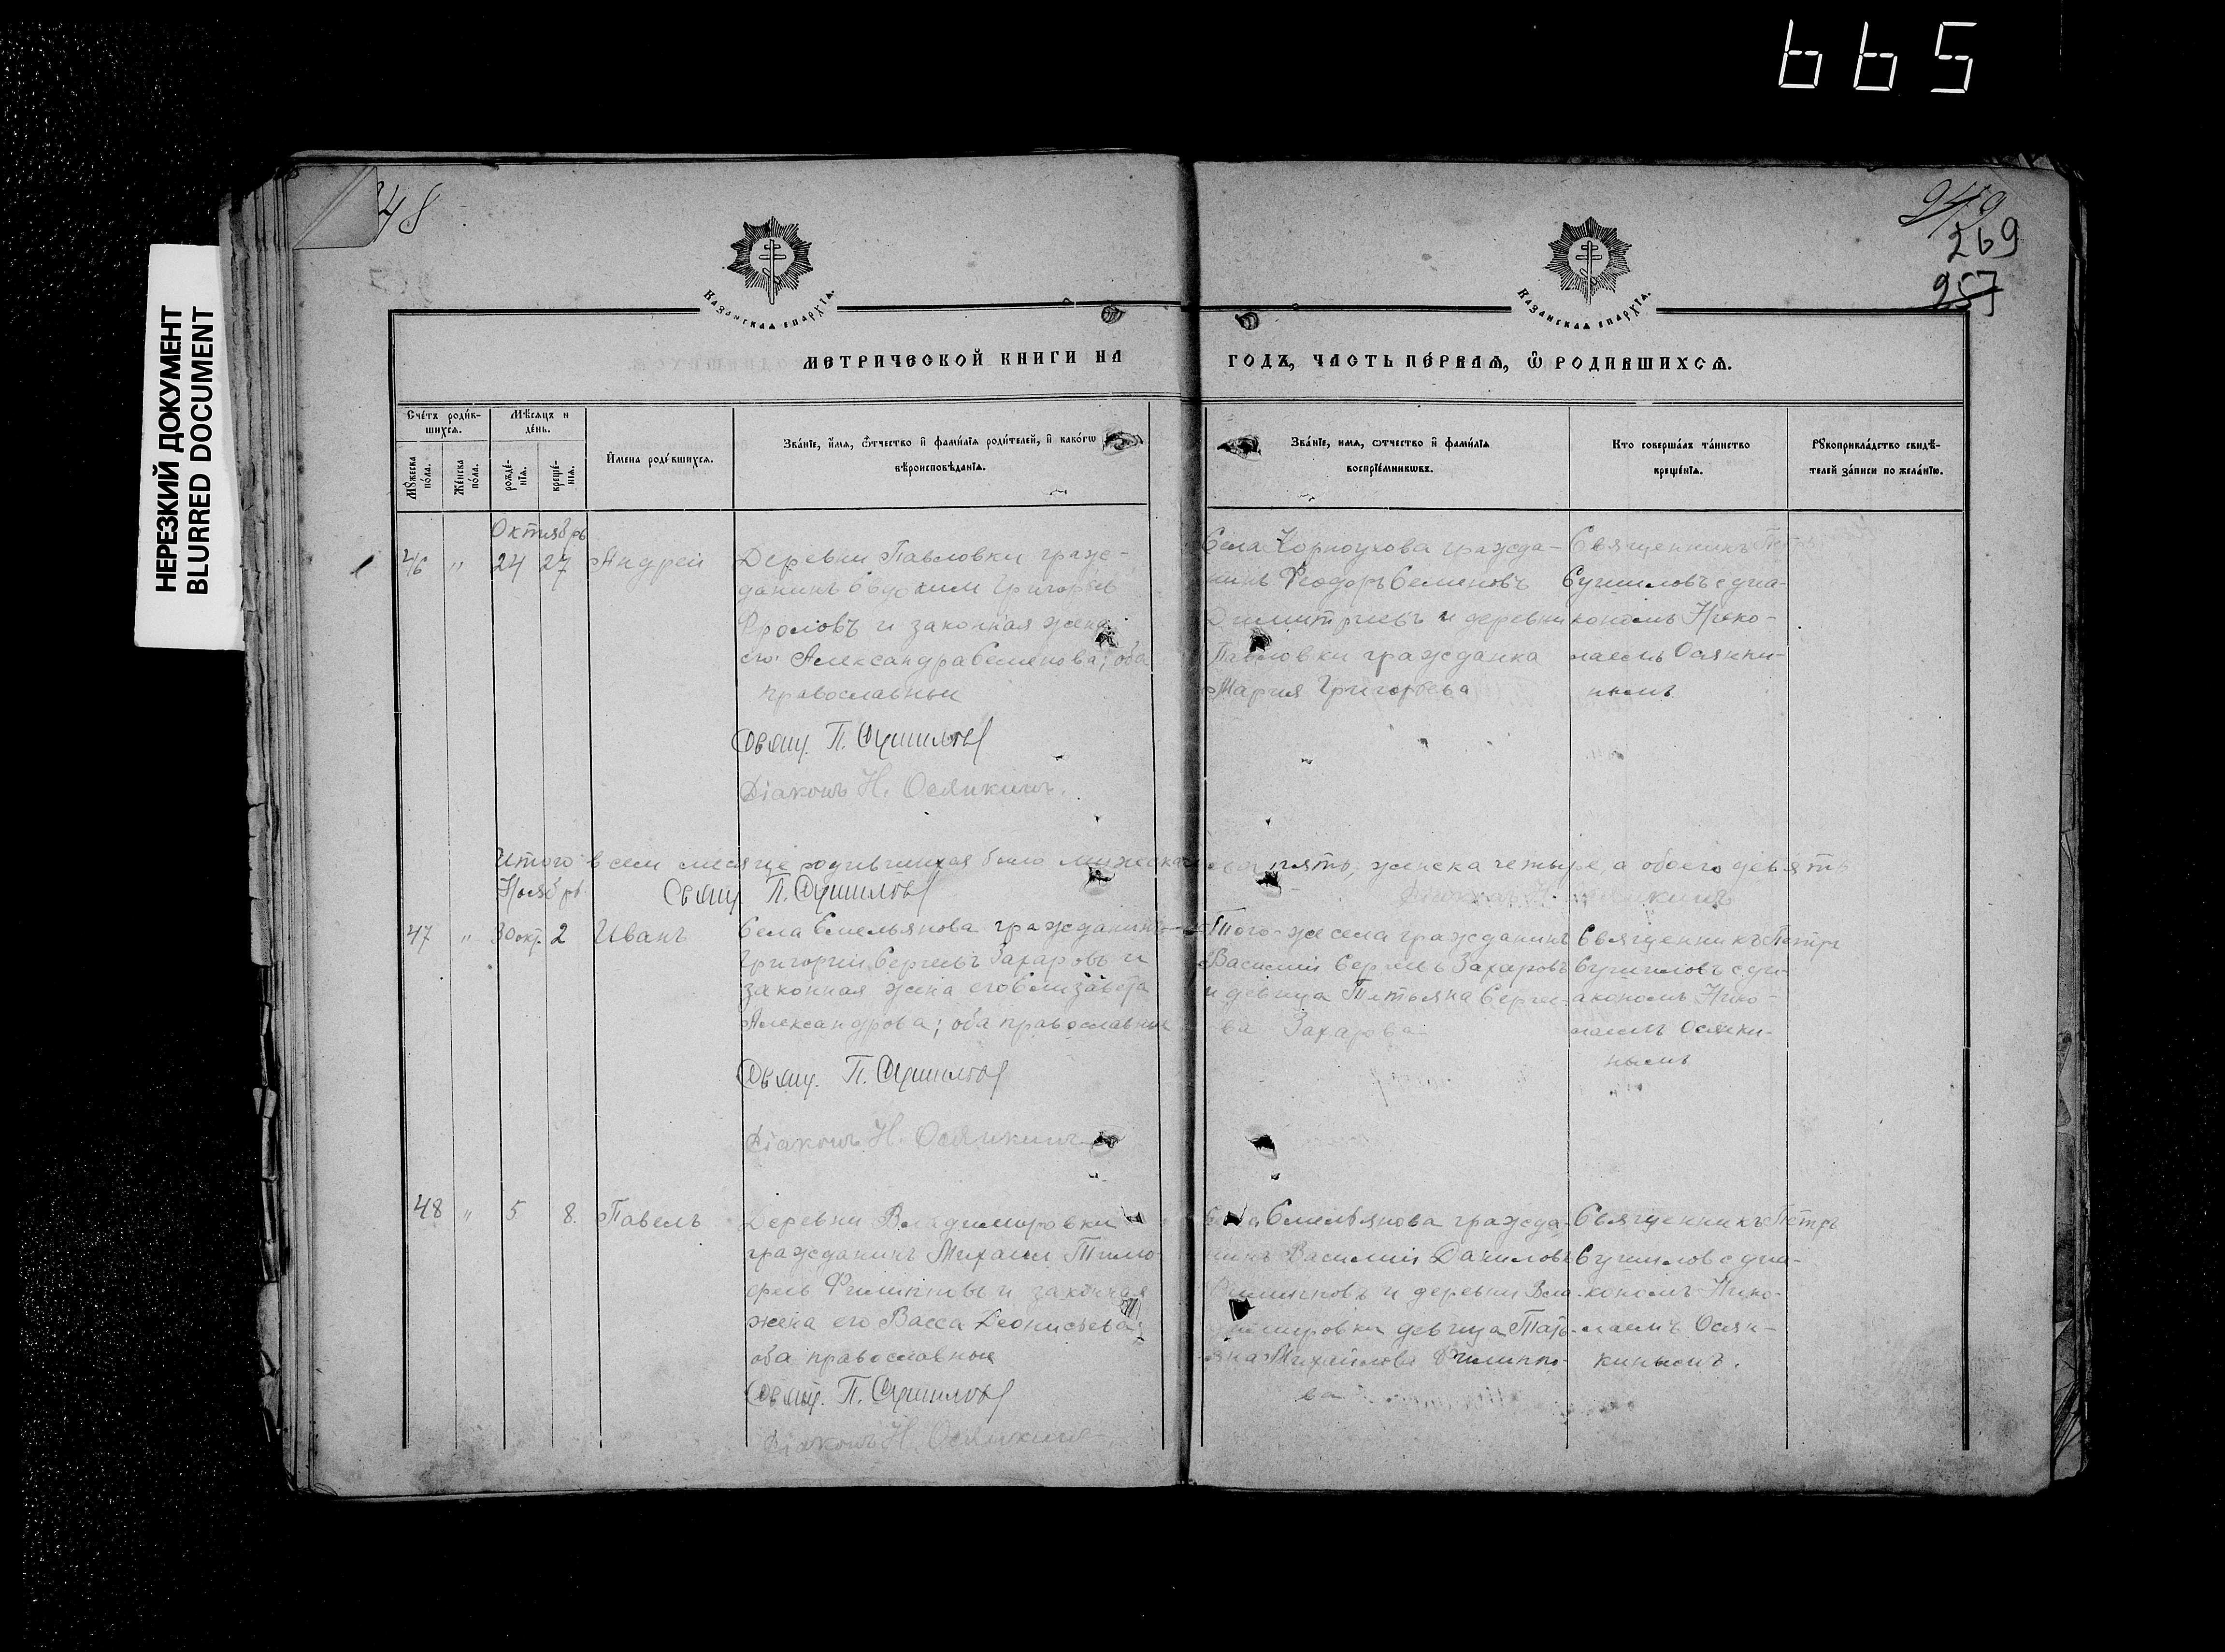 665
НЕРЕЗКИЙ ДОКУМЕНТ
BLURRED DOCUMENT
48
249
269
257
Казанская епархїа.
Казанская епархїа.
МЕТРИЧЕСКОЙ КНИГИ НА ГОДЪ, ЧАСТЬ ПЕ́РВАѦ, Ѡ РОДИВШИХСѦ.
Счéтъ роди́в-
шихсѧ.
Мѹ́жеска по́ла.
Же́нска по́ла.
Мѣ́сѧцъ и
де́нь.
рожде́-
нїѧ.
креще́-
нїѧ.
И́мена роди́вшихсѧ.
Зва́нїе, и́мѧ, ѻ́тчество и҆ фами́лїѧ роди́телей, и҆ како́гѡ
вѣ́роисповѣ́данїѧ.
Зва́нїе, имѧ, ѻтчество и҆ фами́лїѧ
воспрїе́мниковъ.
Кто соверша́лъ та́инство
креще́нїѧ.
Рѹкоприкла́дство свидѣ́-
телей за́писи по жела́нїю.
Октябрь
46 " 24 27 Андрей
Деревни Павловки граж-
данинъ Григорьев
Фроловъ и законная жена
его Александра Семенова; оба
православные
Свящ. П. Сушилов
Діаконъ Н. Осянкинъ.
Села Корноухова гражда-
нинъ Феодоръ Семеновъ
Димитриевъ и деревни
Павловки гражданка
Мария Григорьева
Священникъ Петръ
Сушиловъ с диа-
кономъ Нико-
лаемъ Осянки-
нымъ
Итого в сем месяце родившихся было мужеска пола пять, женска четыре, а обоего девять
Ноябрь Свящ. П. Сушилов Діаконъ Н. Осянкинъ
47 " 30 окт. 2 Иванъ
Села Емельянова гражданинъ
Григорий Сергеевъ Захаровъ и
законная жена его Елизавета
Александрова; оба православные
Свящ. П. Сушилов
Діаконъ Н. Осянкинъ
Того-же села гражданинъ
Василий Сергеевъ Захаровъ
и девица Татьяна Сергее-
ва Захарова
Священникъ Петръ
Сушиловъ с ди-
акономъ Нико-
лаемъ Осянки-
нымъ
48 " 5 8. Павелъ
Деревни Владимировки
гражданинъ Михаил Тимо-
феев Филиппов и законная
жена его Васса Деонисьева;
оба православные
Свящ. П. Сушилов
Діаконъ Н. Осянкинъ
Села Емельянова гражда-
нинъ Василий Данилов
Филипповъ и деревни Вла-
димировки девица Тать-
яна Михайлова Филиппо-
ва
Священникъ Петръ
Сушилов с диа-
кономъ Нико-
лаемъ Осян-
кинымъ.